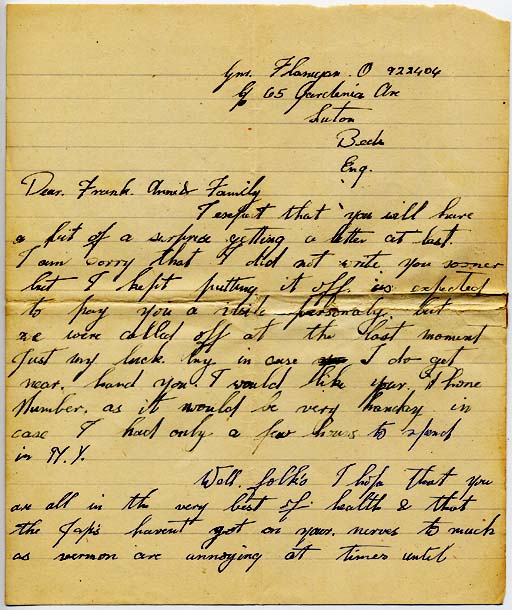 Gnr. Flanigan. O 922404
c/o 65 Gardenia Ave
Luton
Beds
Eng.
Dear. Frank. Annie & Family
I expect that you will have
a bit of a surprise getting a letter at last.
I am sorry that I did not write you sooner
but I kept putting it off as expected
to pay you a visit personaly. but
we were called off at the last moment
Just my luck. in case I do get
near. hand you. I would like your. Phone
Number. as it would be very handy in
case I had only a few hours to spend
in N.Y.
Well. folk's I hope that you
are all in the very best of health & that
the Jap's havent got on your. nerves to much
as vermon are annoying at times until